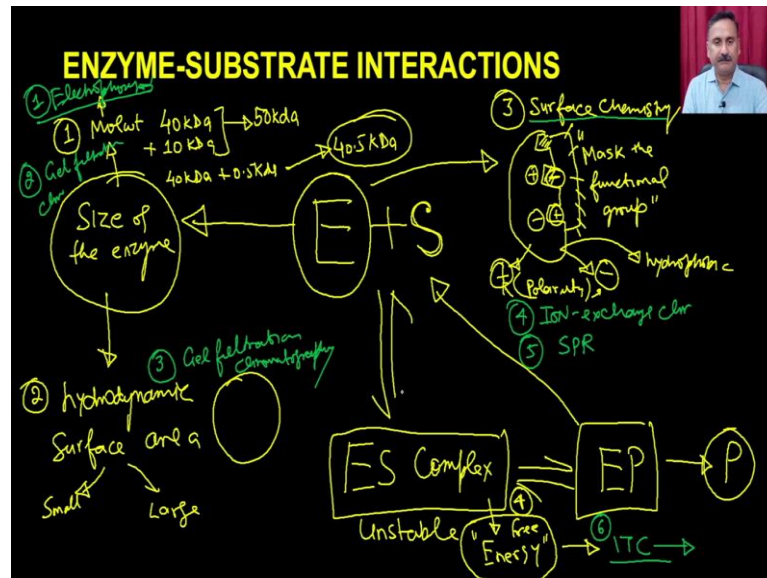 ENZYME-SUBSTRATE INTERACTIONS
1 Electrophoresis
1 Molwt 40KDa
+ 10KDa
50kda
2 Gel filtration
chr
40KDa + 0.5Kda
40.5KDa
Size of
the enzyme
E + S
3 Surface Chemistry
"Mask the
functional
group"
+ +
- +
+ (Polarity), -
hydrophobic
4 Ion-exchange chr
5 SPR
3 Gel filtration
chromatography
2 hydrodynamic
Surface area
Small
Large
ES Complex
EP
P
Unstable
4
"free
Energy"
6
ITC